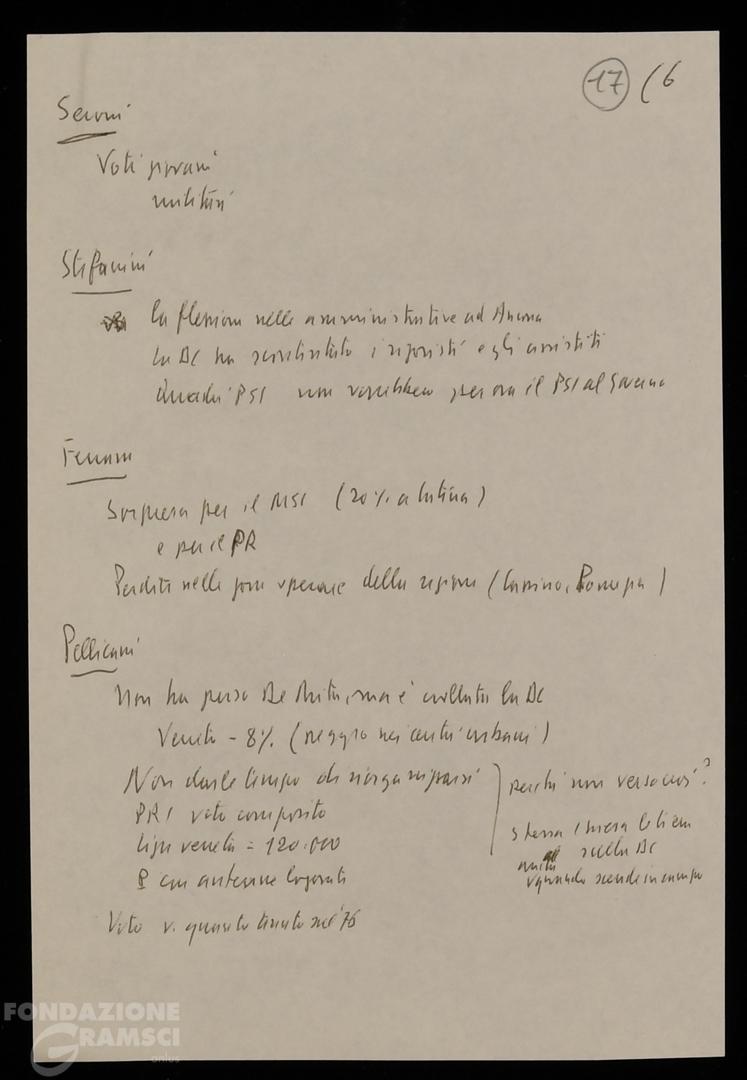 17 (6
Seroni
Voti giovani
militari
Stefanini
La flessione nelle amministrative ad Ancona
La DC ha scontentato i e gli
Quadri PSI non vorrebbero per ora il PSI al Governo
Ferrara
Sorpresa per il MSI (20% a Latina)
e per il PR
Perdite nelle zone operaie della regione (Cassino, Pomezia)
Pellicani
Non ha perso De Mita, ma è crollata la DC
Veneto - 8% (peggio nei centri urbani)
Non darle tempo di riorganizzarsi
PRI voto composito
Liga veneta = 120.000
con antenne logorate
Voto v. quanto tenuto nel '76
perché non verso noi?
stessa
sulla DC
quando scende in campo
FONDAZIONE
GRAMSCI
onlus